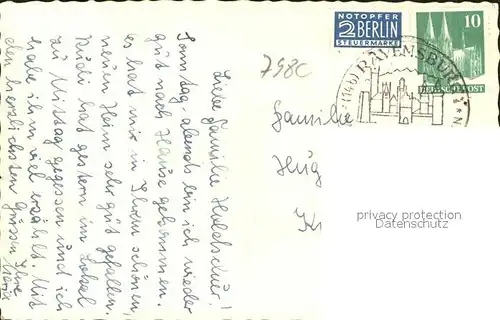 Liebe Familie
Sonntag abends bin ich wieder
gut nach Hause gekommen.
es hat mir in Ihrem schönen,
neuen Heim sehr gut gefallen.
Rudi hat gestern im Lokal
zu Mittag gegessen und ich
habe ihm viel erzählt. Mit
den herzlichsten Grüssen Ihre
Maria
NOTOPFER
2 BERLIN
STEUERMARKE
10
DEUTSCHE POST
(14b) RAVENSBURG
798C
Familie
Hug
privacy protection
watermark